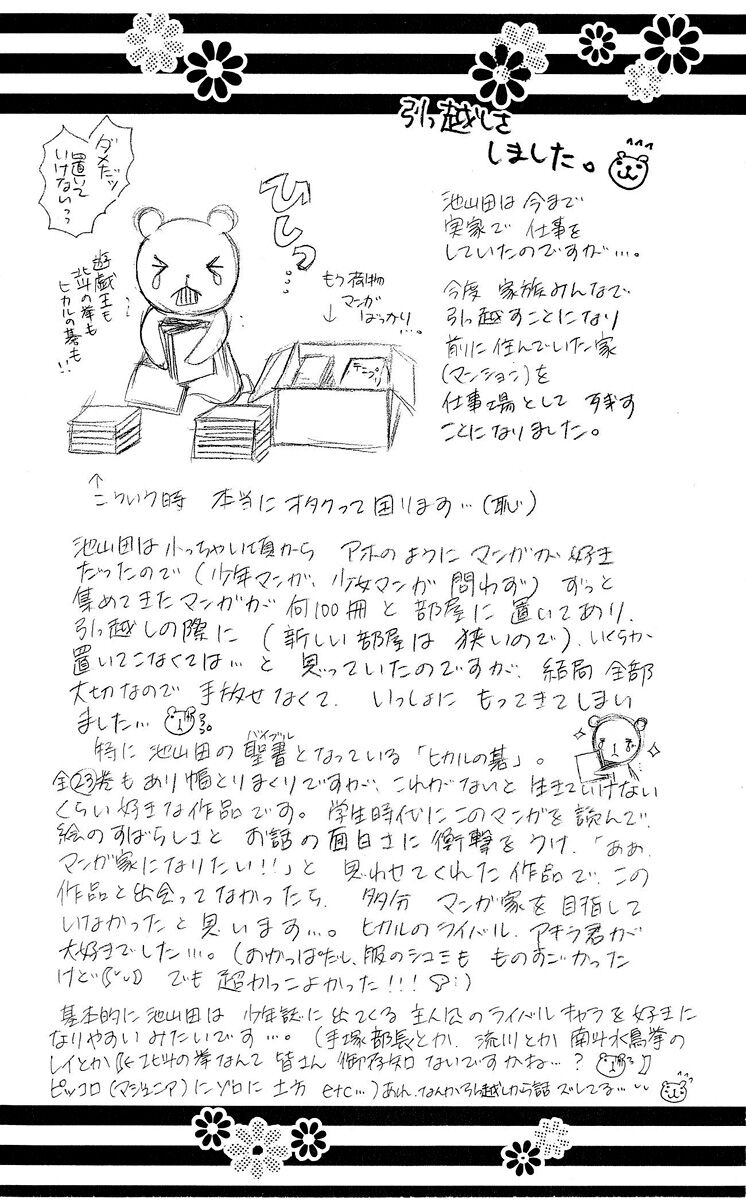 引っ越しさ
しました。
ダメだッ
置いて
いけないっっ
ひしっ…
遊戯王も
北斗の拳も
ヒカルの碁も!!
もう荷物
マンガ
ばっかり…。
↓
テニプリ
池山田は今まで
実家で仕事を
していたのですが…。
今度 家族みんなで
引っ越すことになり
前に住んでいた家
(マンション)を
仕事場として
ことになりました。
↑
こういう時 本当にオタクって困ります…(恥)
池山田は小っちゃい頃から アホのように マンガが好き
だったので(少年マンガ、少女マンガ 問わず)ずっと
集めてきたマンガが 何100冊と 部屋に 置いてあり、
引っ越しの際に(新しい部屋は 狭いので)、いくらか
置いてこなくては…と 思っていたのですが、結局 全部
大切なので 手放せなくて、いっしょに もってきてしまい
ました…
特に 池山田の 聖書(バイブル)となっている「ヒカルの碁」。
全23巻もあり幅とりまくりですが、これがないと 生きていけない
くらい好きな作品です。学生時代にこのマンガを 読んで、
絵のすばらしさと お話の面白さに 衝撃をうけ、「ああ、
マンガ家になりたい!!」と 思わせてくれた作品で、この
作品と出会ってなかったら、多分 マンガ家を目指して
いなかったと思います…。ヒカルのライバル、アキラ君が
大好きでした…。(おかっぱだし、服のシュミも ものすごかった
けど) でも 超かっこよかった!!!
基本的に池山田は 少年誌に出てくる 主人公のライバルキャラを好きに
なりやすいみたいです…。(手塚部長とか、流川とか 南斗水鳥拳の
レイとか 北斗の拳なんて 皆さん 御存知ないですかね…?
ピッコロ(マジュニア)にゾロに 土方 etc…)あれ、なんか引っ越しから話ズレてる…